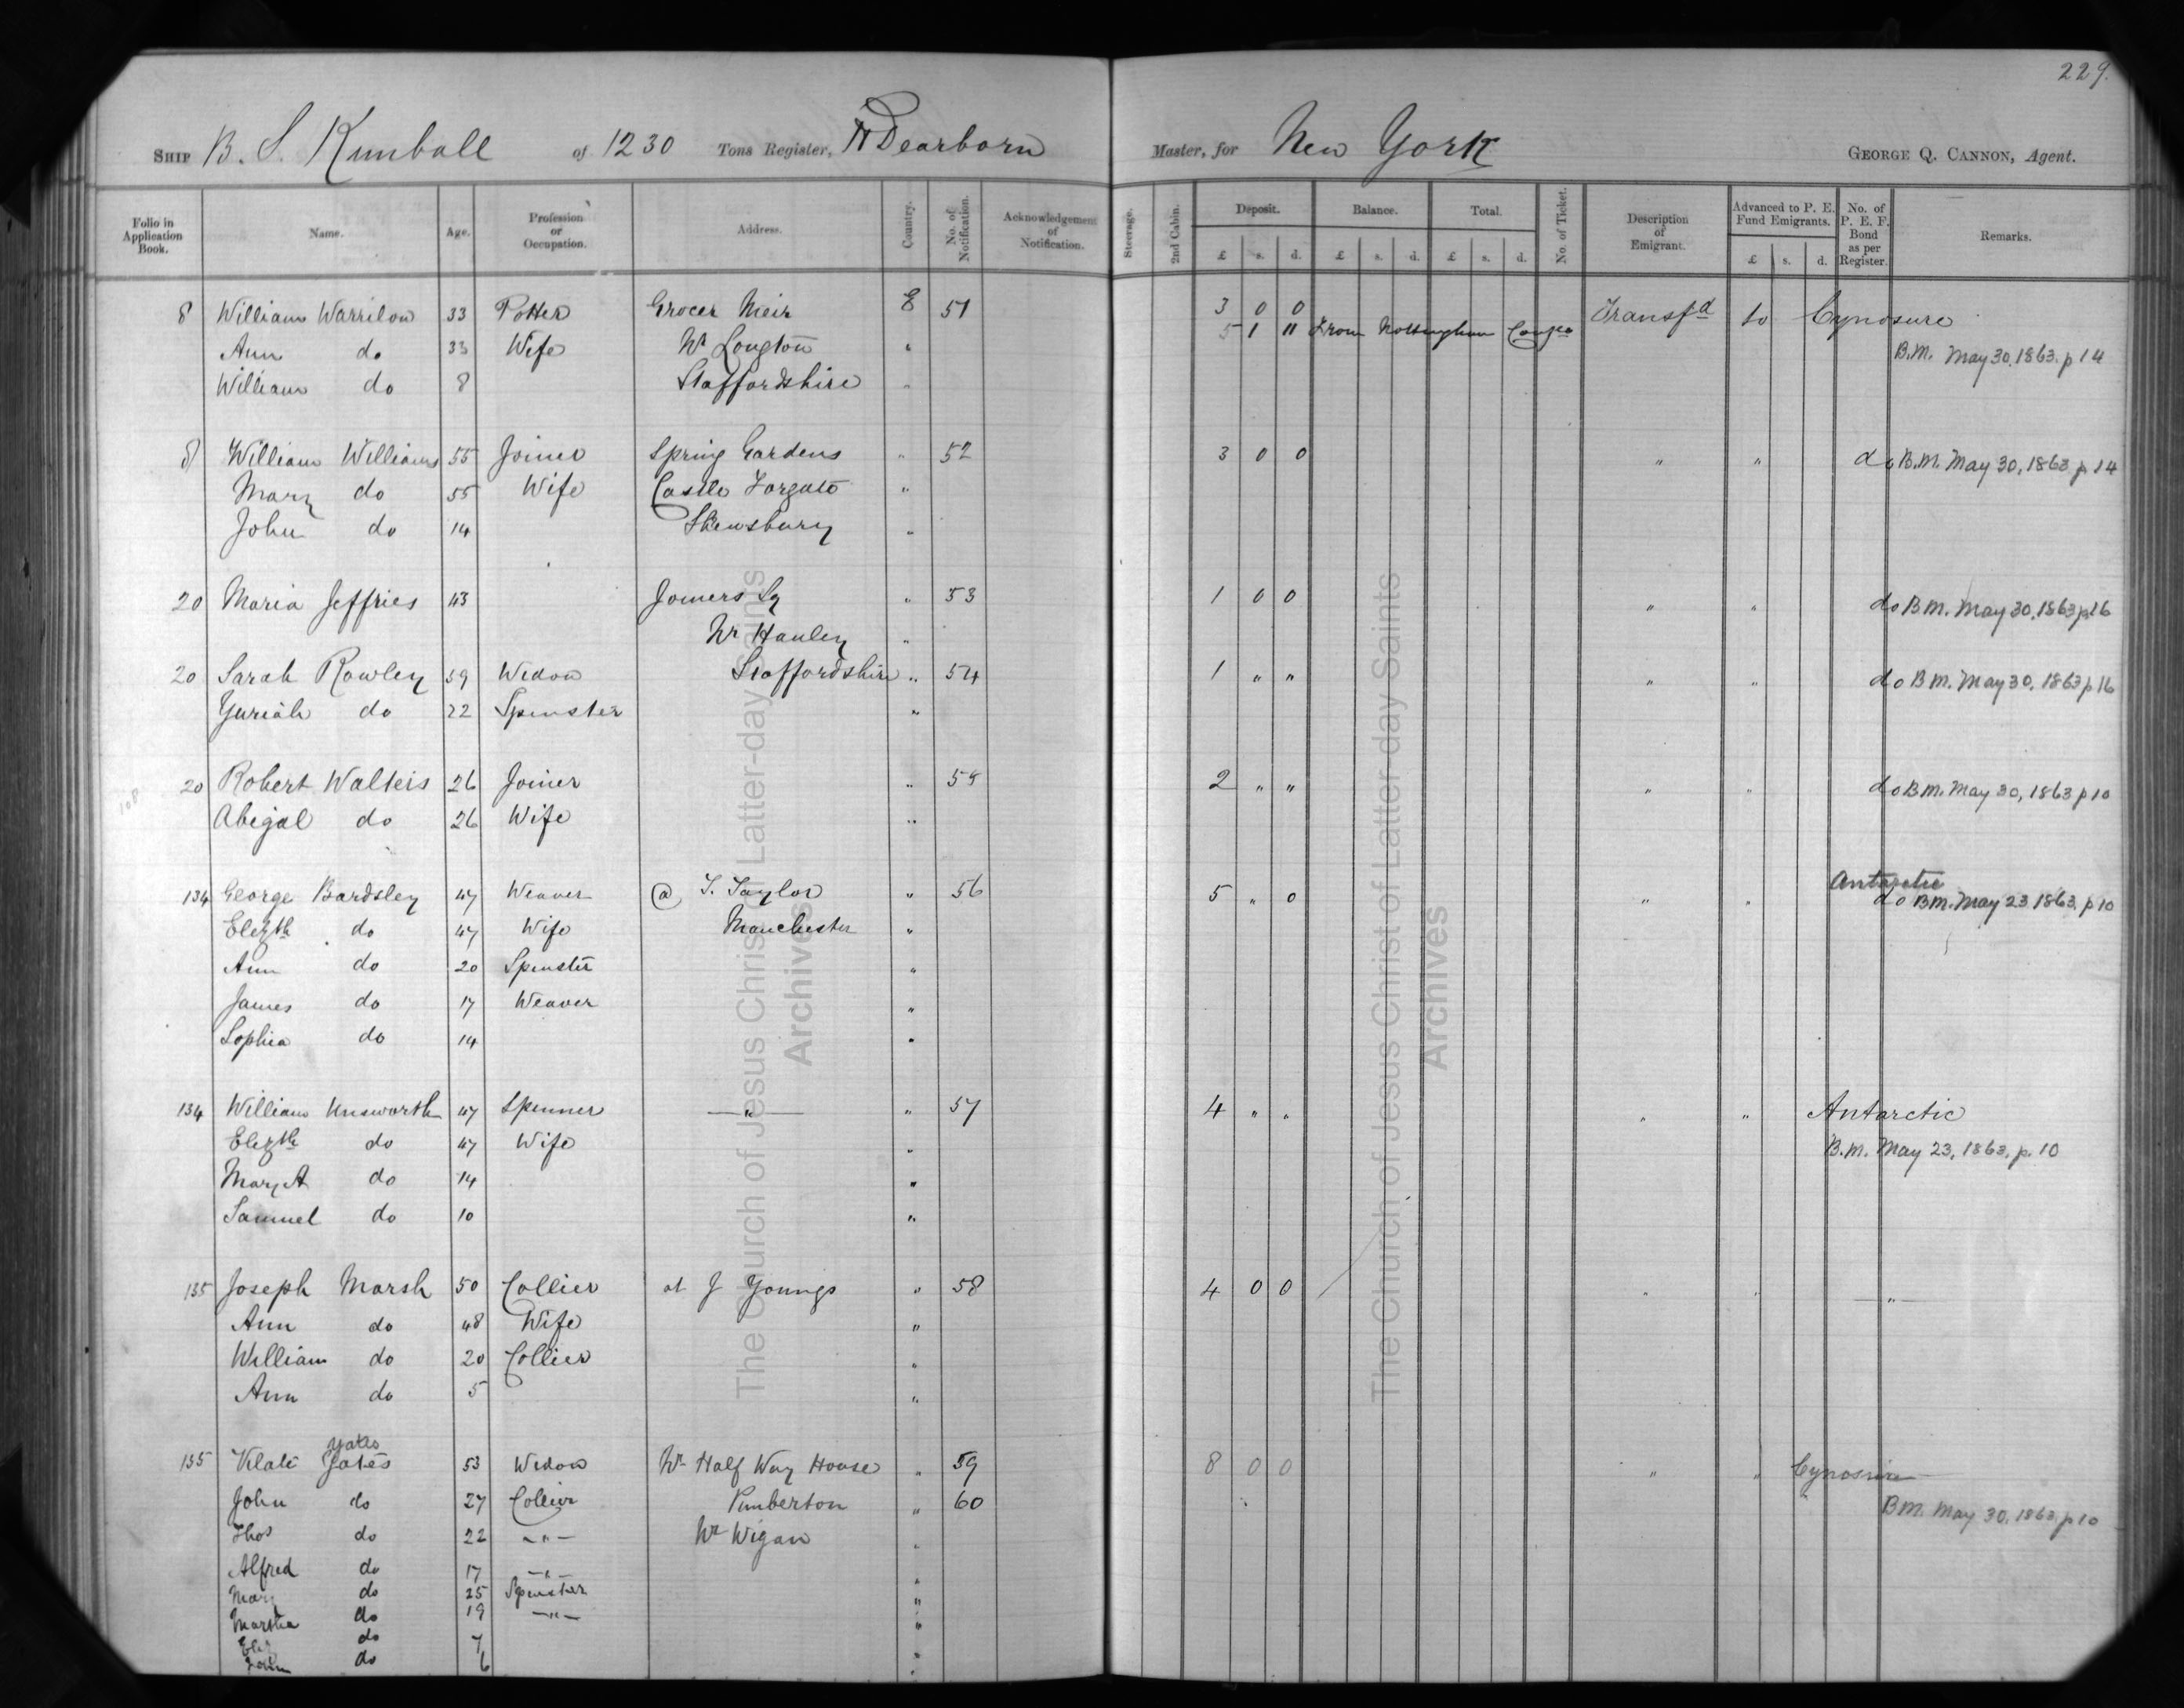 229.
SHIP B. S. Kimball of 1230 Tons Register, H Dearborn Master, for New York GEORGE Q. CANNON, Agent.
Folio in Application Book. Name. Age. Profession or Occupation. Address. Country. No. of Notification. Acknowledgement of Notification. Steerage. 2nd Cabin. Deposit. Balance. Total. No. of Ticket. Description of Emigrant. Advanced to P. E. Fund Emigrants. No. of P. E. F. Bond as per Register. Remarks.
£ s. d. £ s. d. £ s. d. £ s. d.
8 William Warrilow 33 Potter Grocer Meir E 51 3 0 0 Transfd to Cynosure
5 1 11 From Nottingham Confce
Ann do 33 Wife Nr Longton " B.M. May 30, 1863. p 14
William do 8 Staffordshire "
8 William Williams 55 Joiner Spring Gardens " 52 3 0 0 " " do B.M. May 30, 1863 p 14
Mary do 55 Wife Castle Forgate "
John do 14 Shewsbury "
20 Maria Jeffries 43 Joiners Sq " 53 1 0 0 " " do B.M. May 30, 1863 p 16
Nr Hanley "
20 Sarah Rowley 59 Widow Staffordshire " 54 1 " " " " do B.M. May 30, 1863 p 16
do 22 Spinster "
20 Robert Walters 26 Joiner " 55 2 " " " " do B.M. May 30, 1863 p 10
108
Abigal do 26 Wife "
Antarctic
134 George Bardsley 47 Weaver @ T. Taylor " 56 5 " 0 " " do B.M. May 23 1863, p 10
Elizth do 47 Wife Manchester "
Ann do 20 Spinster "
James do 17 Weaver "
Sophia do 14 "
134 William Unsworth 47 Spinner — " — " 57 4 " " " " Antarctic
Elizth do 47 Wife " B.M. May 23, 1863, p. 10
Mary A do 14 "
Samuel do 10 "
135 Joseph Marsh 50 Collier at J Youngs " 58 4 0 0 " " — " —
Ann do 48 Wife "
William do 20 Collier "
Ann do 5 "
Yates
135 Gates 53 Widow Nr Half Way House " 59 8 0 0 " " Cynosure
John do 27 Collier Pemberton " 60 B.M. May 30, 1863, p 10
Thos do 22 — " — Nr Wigan "
Alfred do 17 — " — "
Mary do 25 Spinster "
Martha do 19 — " — "
do 7 "
do 6 "
The Church of Jesus Christ of Latter-day Saints
Archives
The Church of Jesus Christ of Latter-day Saints
Archives